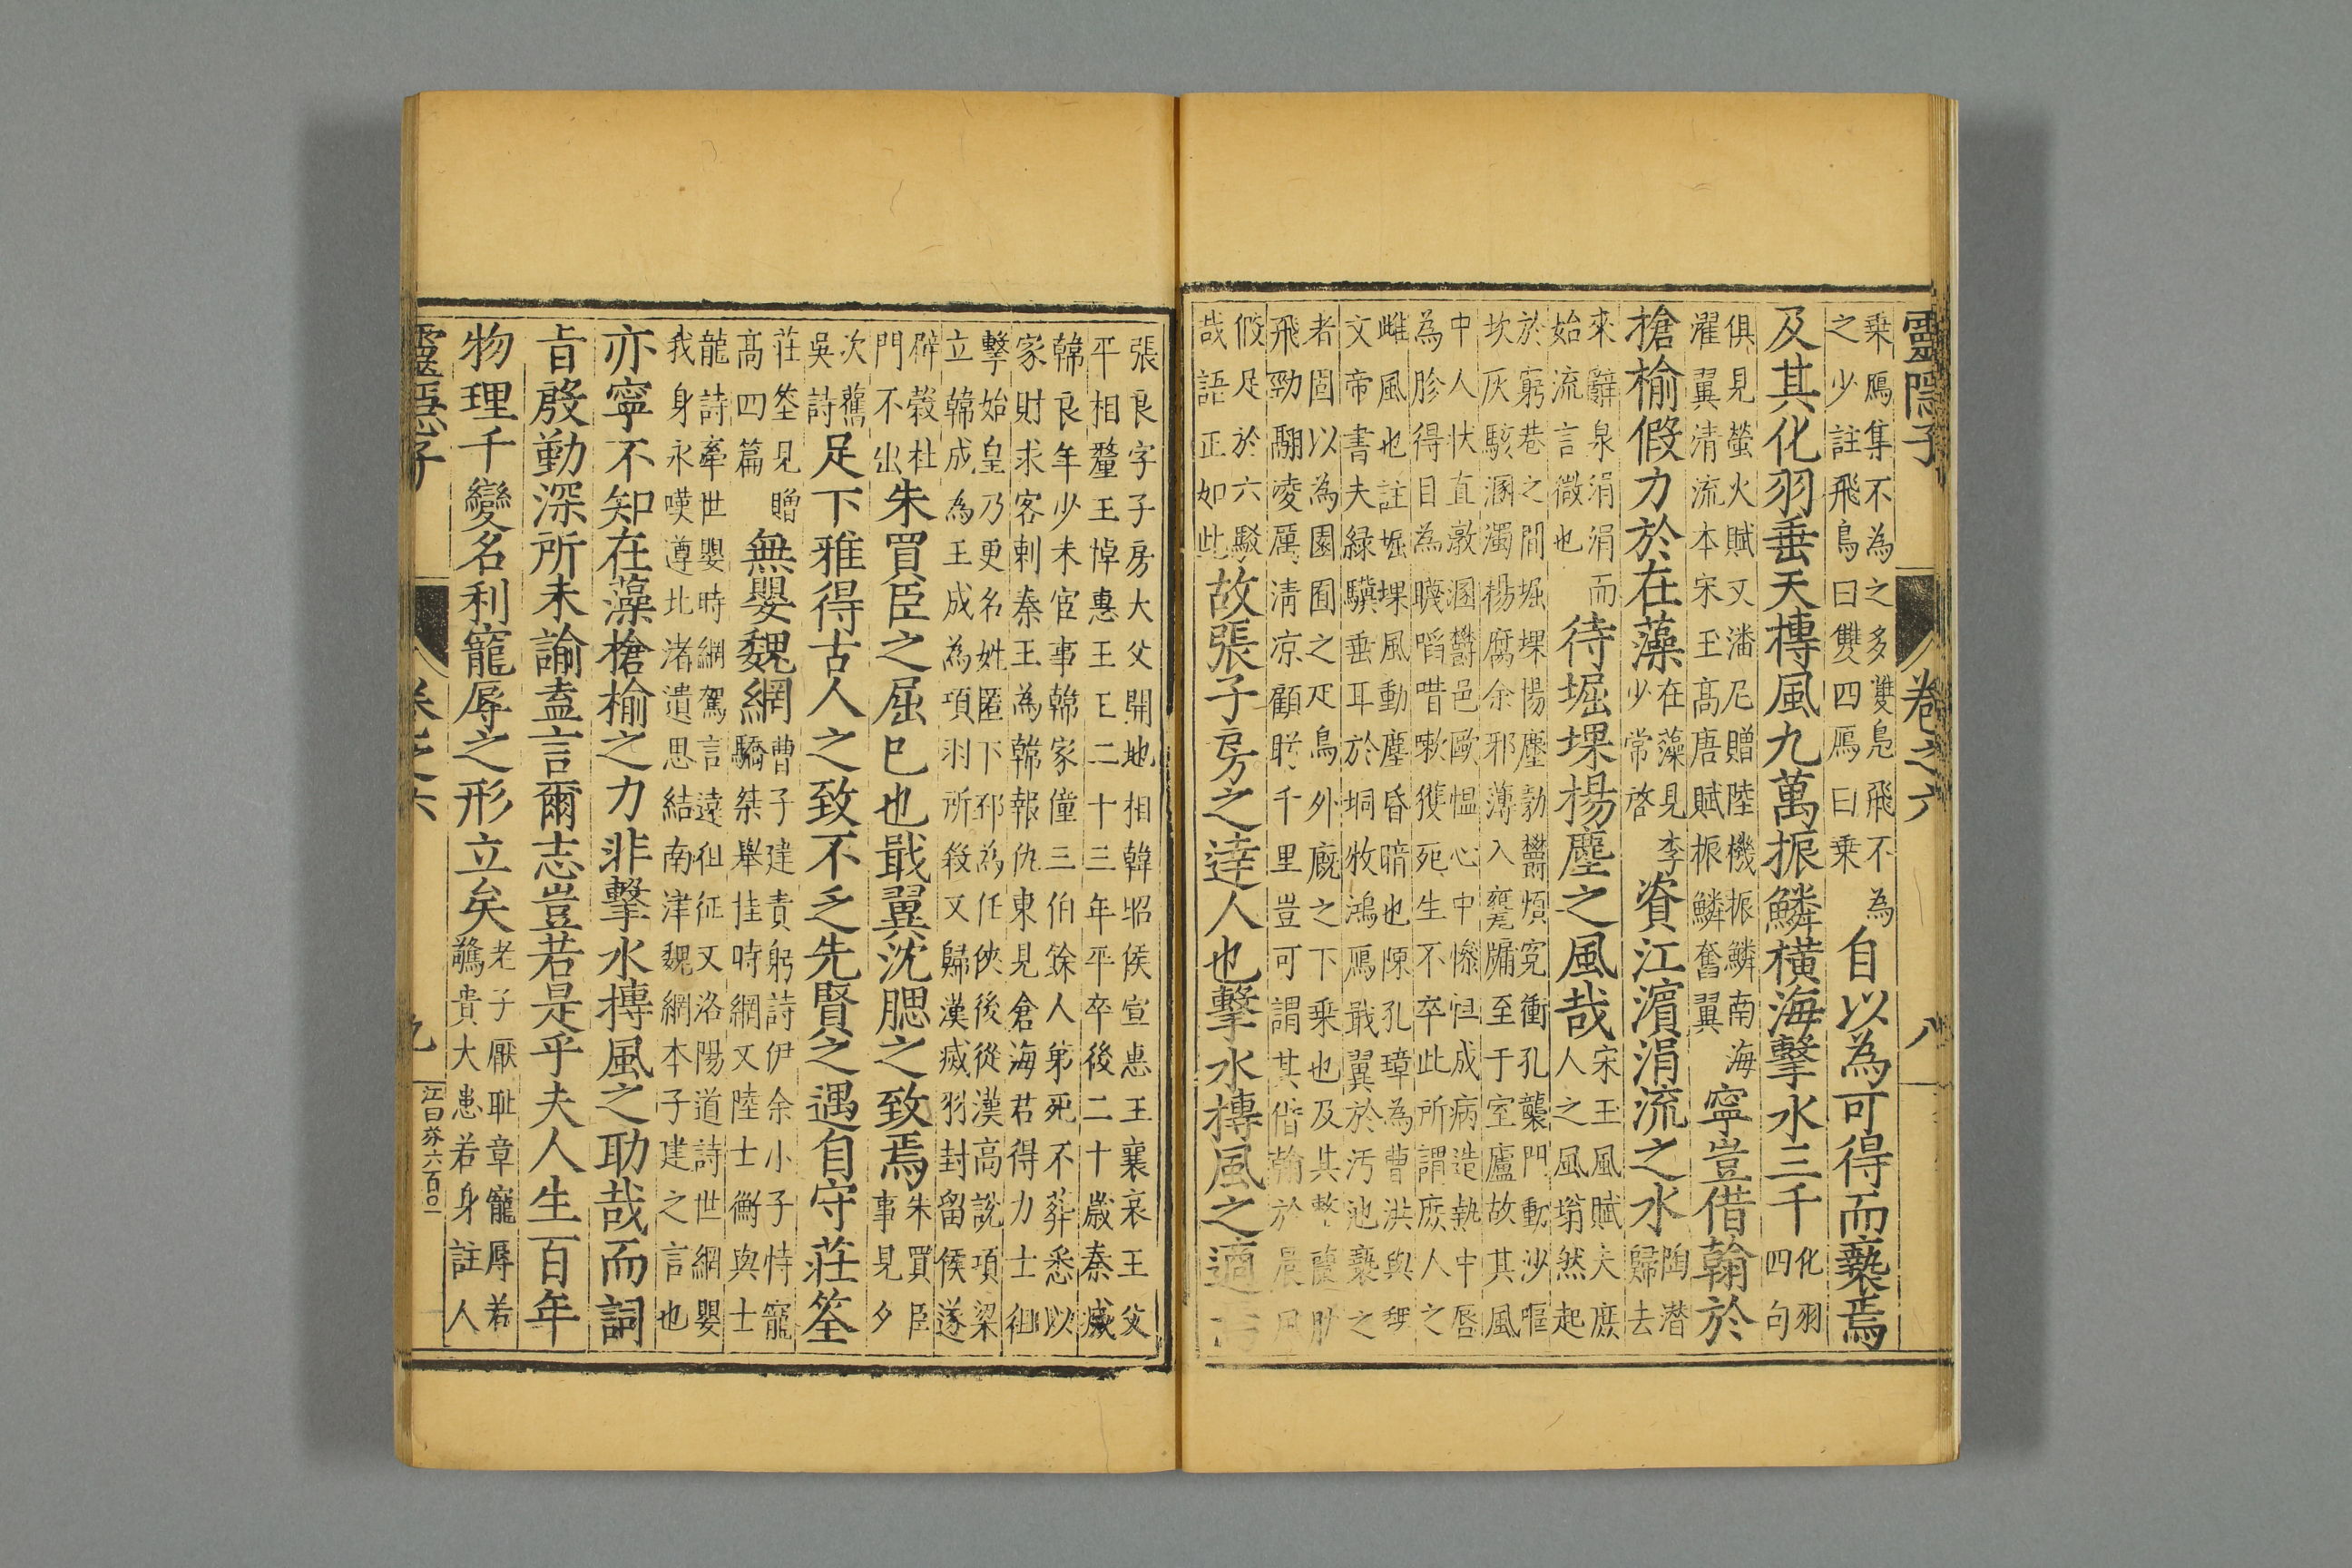 靈隱子 卷之六 八
乗鴈集不為之多雙鳬飛不為
之少註飛鳥曰雙四鴈曰乗
自以為可得而褻焉
及其化羽垂天摶風九萬振鱗橫海擊水三千
化羽
四句
俱見螢火賦又潘尼贈陸機振鱗南海
濯翼清流本宋玉髙唐賦振鱗奮翼
寧豈借翰於
槍榆假力於在藻
在藻見李
少常啓
資江濵涓流之水
陶潛
歸去
來辭泉涓涓而
始流言微也
待堀堁揚塵之風哉
宋玉風賦夫庻
人之風塕然起
於窮巷之間堀堁揚塵勃鬱煩寃衝孔襲門動沙堁
坎灰駭溷濁楊腐余邪薄入甕牖至于室廬故其風
中人狀直憞溷欝邑歐愠心中慘怛成病造熱中唇
為胗得目為矇㗖唶嗽獲死生不卒此所謂庻人之
雌風也註堀堁風動塵昏暗也陳孔璋為曹洪與魏
文帝書夫緑驥垂耳於坰牧鴻鴈戢翼於汚池褻之
者固以為園囿之凡鳥外廐之下乗也及其整蘭肋
飛勁翮凌厲清凉顧眄千里豈可謂其借翰於晨風
假足於六駁
哉語正如此
故張子房之逹人也擊水摶風之適
張良字子房大父開地相韓昭侯宣惠王襄哀王父
平相釐王悼惠王王二十三年平卒後二十歲秦滅
韓良年少未宦事韓家僮三伯餘人弟死不葬悉以
家財求客剌秦王為韓報仇東見倉海君得力士徂
擊始皇乃更名姓匿下邳為任俠後從漢高説項梁
立韓成為王成為項羽所殺又歸漢㓕羽封留侯遂
辟穀杜
門不出
朱買臣之屈巳也戢翼沈腮之致焉
朱買臣
事見夕
次舊
吳詩
足下雅得古人之致不乏先賢之遇自守莊筌
莊筌見贈
髙四篇
無嬰魏網
曹子建責躬詩伊余小子恃寵
驕桀舉挂時網又陸士衡與士
龍詩牽世嬰時網駕言遠徂征又洛陽道詩世網嬰
我身永嘆遵北渚遺思結南津魏網本子建之言也
亦寧不知在藻槍榆之力非擊水摶風之助哉而詞
㫖殷勤深所未諭盍言爾志豈若是乎夫人生百年
物理千變名利寵辱之形立矣
老子厭耻章寵辱若
驚貴大患若身註人
靈隱子 卷之六 九